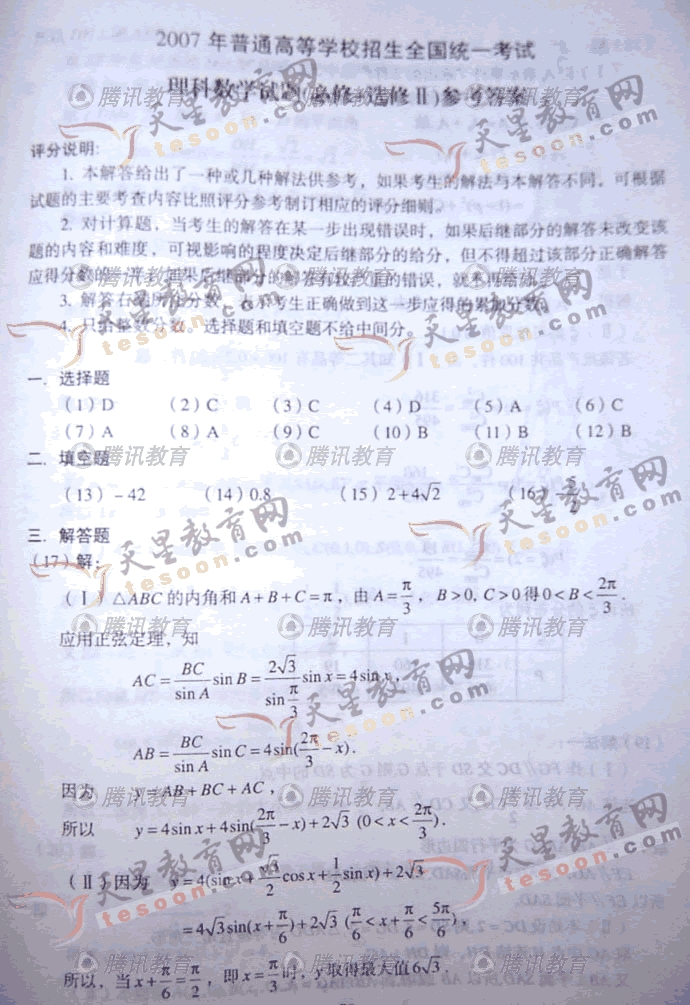 2007 年普通高等学校招生全国统一考试
理科数学试题(必修+选修Ⅱ)参考答案
评分说明:
1. 本解答给出了一种或几种解法供参考，如果考生的解法与本解答不同，可根据
试题的主要考查内容比照评分参考制订相应的评分细则。
2. 对计算题，当考生的解答在某一步出现错误时，如果后继部分的解答未改变该
题的内容和难度，可视影响的程度决定后继部分的给分，但不得超过该部分正确解答
应得分数的一半；如果后继部分的解答有较严重的错误，就不再给分。
3. 解答右端所注分数，表示考生正确做到这一步应得的累加分数。
4. 只给整数分数。选择题和填空题不给中间分。
一. 选择题
(1) D (2) C (3) C (4) D (5) A (6) C
(7) A (8) A (9) C (10) B (11) B (12) B
二. 填空题
(13) -42 (14) 0.8 (15) 2+4√2 (16) -5/2
三. 解答题
(17) 解:
(Ⅰ) △ABC 的内角和 A+B+C=π，由 A=π/3，B>0, C>0 得 0<B<2π/3.
应用正弦定理，知
AC = BC/sin A sin B = 2√3/sin π/3 sin x = 4sin x,
AB = BC/sin A sin C = 4sin(2π/3 - x).
因为 y=AB+BC+AC,
所以 y=4sin x+4sin(2π/3 - x)+2√3 (0<x<2π/3).
(Ⅱ) 因为 y=4(sin x+√3/2 cos x+1/2 sin x)+2√3
=4√3sin(x+π/6)+2√3 (π/6<x+π/6<5π/6),
所以，当 x+π/6=π/2，即 x=π/3 时, y 取得最大值 6√3.
天星教育网
tesoon.com
腾讯教育